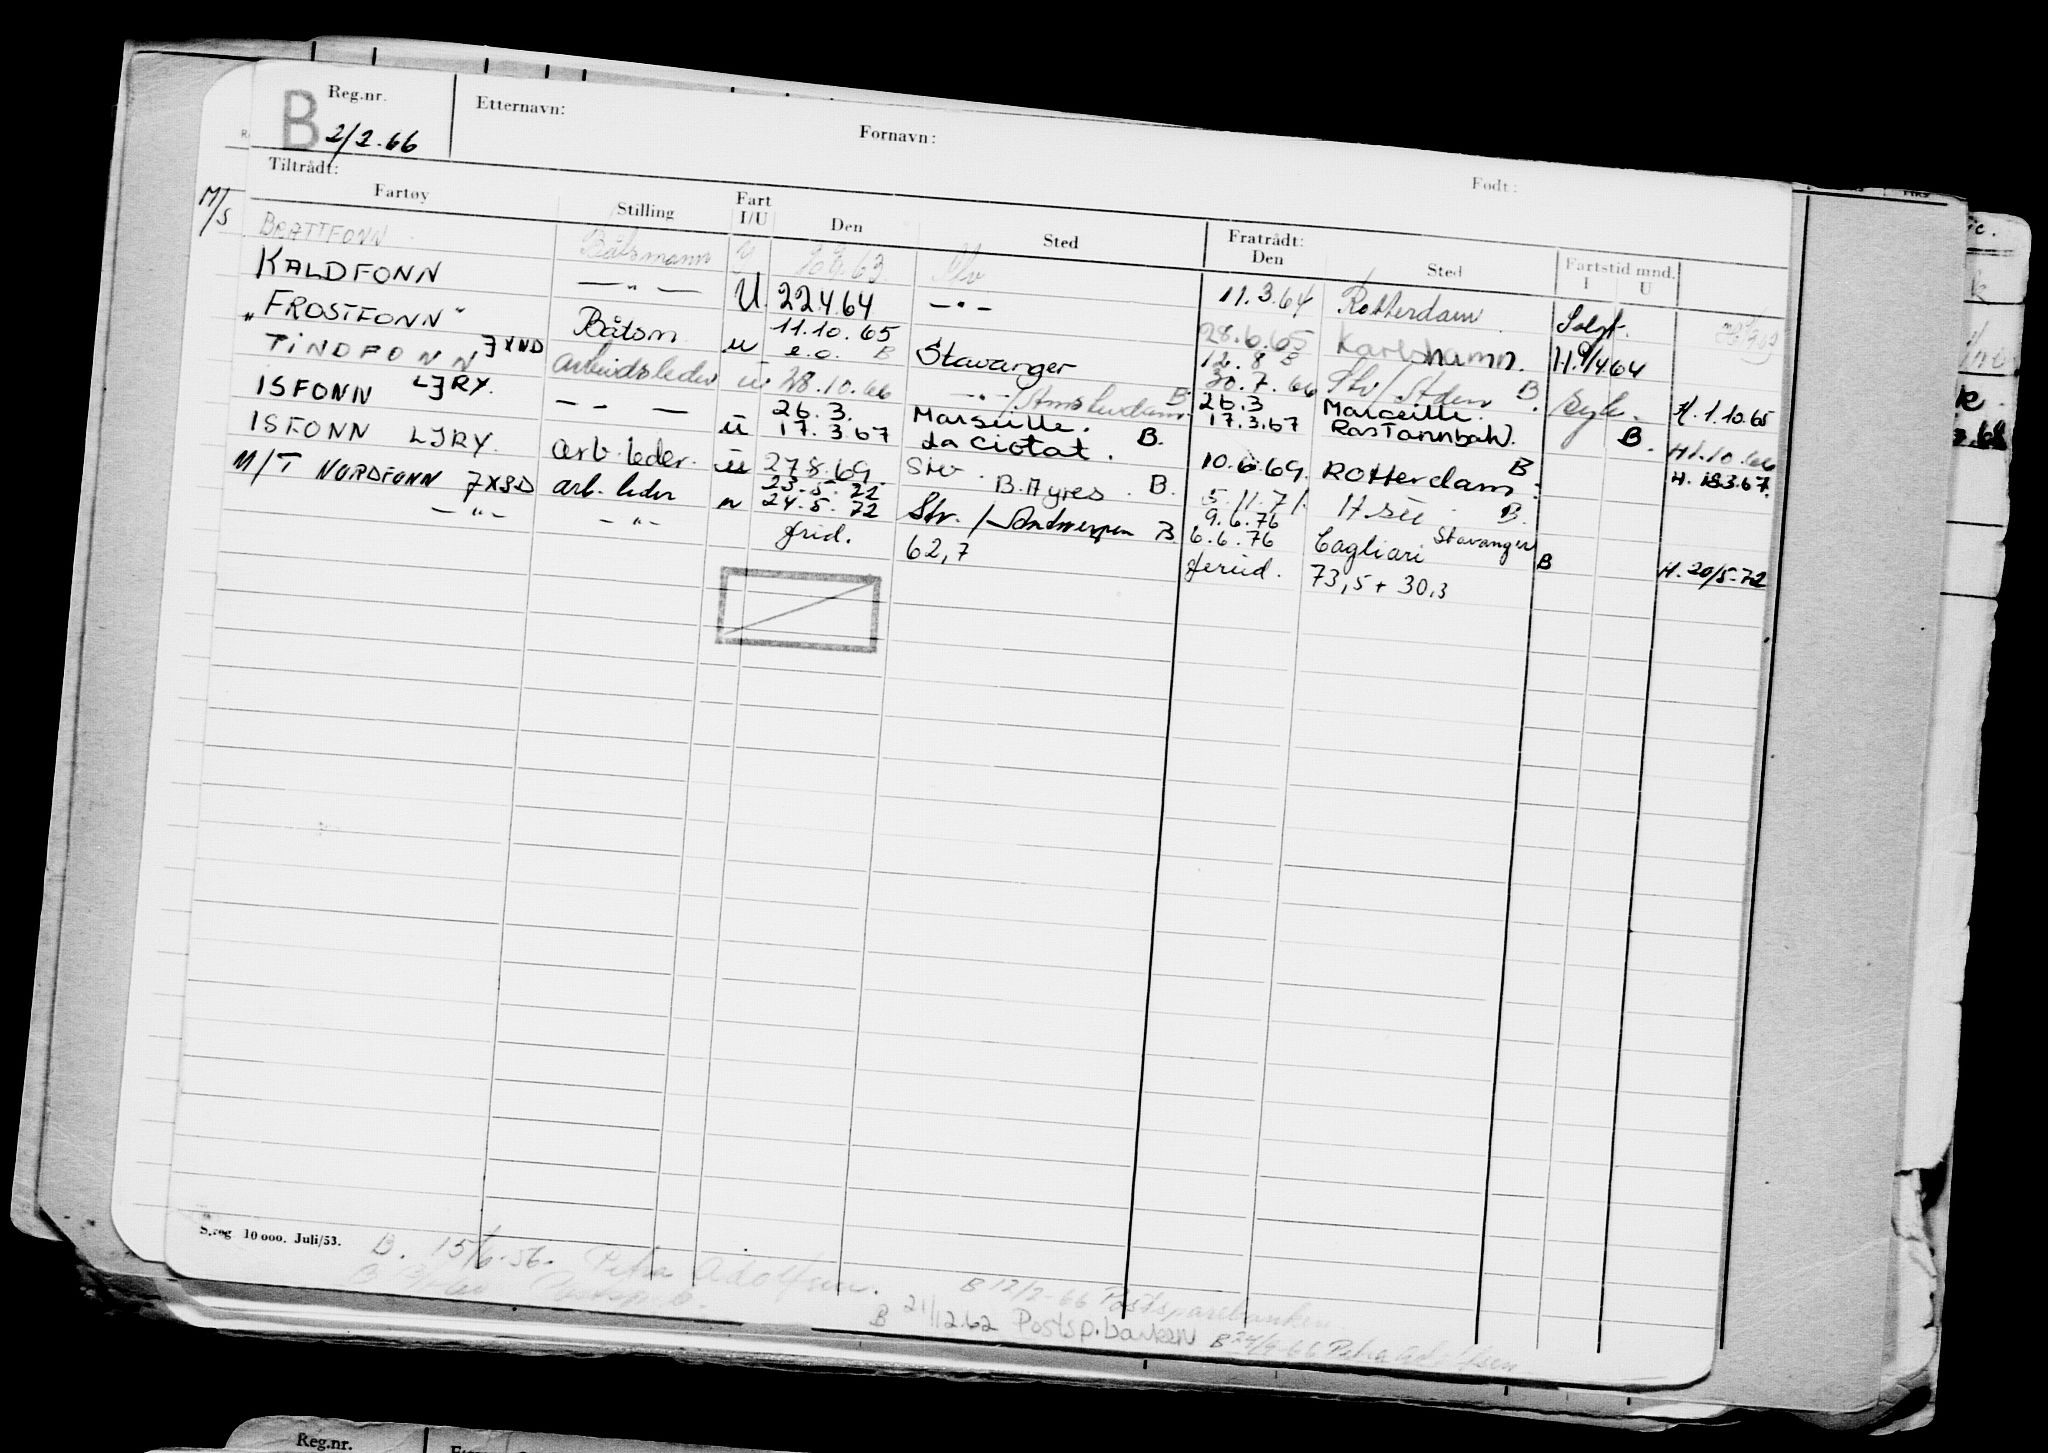 B Reg.nr. Etternavn: Fornavn: Født:
2/2.66
Tiltrådt: Fratrådt:
Fartøy Stilling Fart I/U Den Sted Den Sted Fartstid mnd. I U
M/S BRATTFONN Båtsmann U 63 Stv 11.3.64 Rotterdam Solgt.
KALDFONN —"— U. 22464 —"— 28.6.65 Karlshamn. H.9/4.64
"FROSTFONN" Båtsm u 11.10.65 Stavanger 12.8 B
e.o. B 30.7.66 Stv/Adem B Syk. H.1.10.65
TINDFONN JXND arbeidsleder u 28.10.66 —"—/Amsterdam B 26.3 Marseille. B.
ISFONN LJRY. — " — u 26.3. Marseille. 17.3.67 RasTannbah. H1.10.66
17.3.67 La Ciotat. B. B H. 183.67.
ISFONN LJRY. arb. leder. u 27.8.69. Stv. B. Ayres. B. 10.6.69. Rotterdam.
M/T NORDFONN JXSD arb. leder u 23.5.72 5.11.71. B.
—"— —"— 24.5.72 Stv./Antwerpen B 9.6.76 Stavanger
6.6.76 Cagliari B H. 20/5-72
62,7 73,5 + 30,3
S.reg. 10 000. Juli/53.
B. 15/6.56. Petra Adolfsen.
B 12/2-66 Postsparebanken.
B 21/12.62 Postsp.banken B 24/9-66 Petra Adolfsen
Reg.nr.